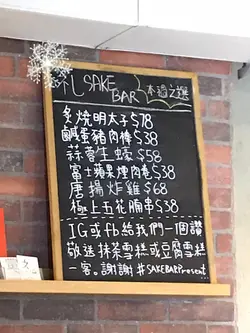 礼 SAKE BAR 本週之選
炙燒明太子 $78
鹹蛋豬肉棒 $38
蒜蓉生蠔 $58
富士蘋果煙肉卷 $38
唐揚炸雞 $68
極上五花腩串 $38
IG或fb給我們一個讚
敬送 抹茶雪糕或豆腐雪糕
一客。謝謝 #SAKEBARPresent